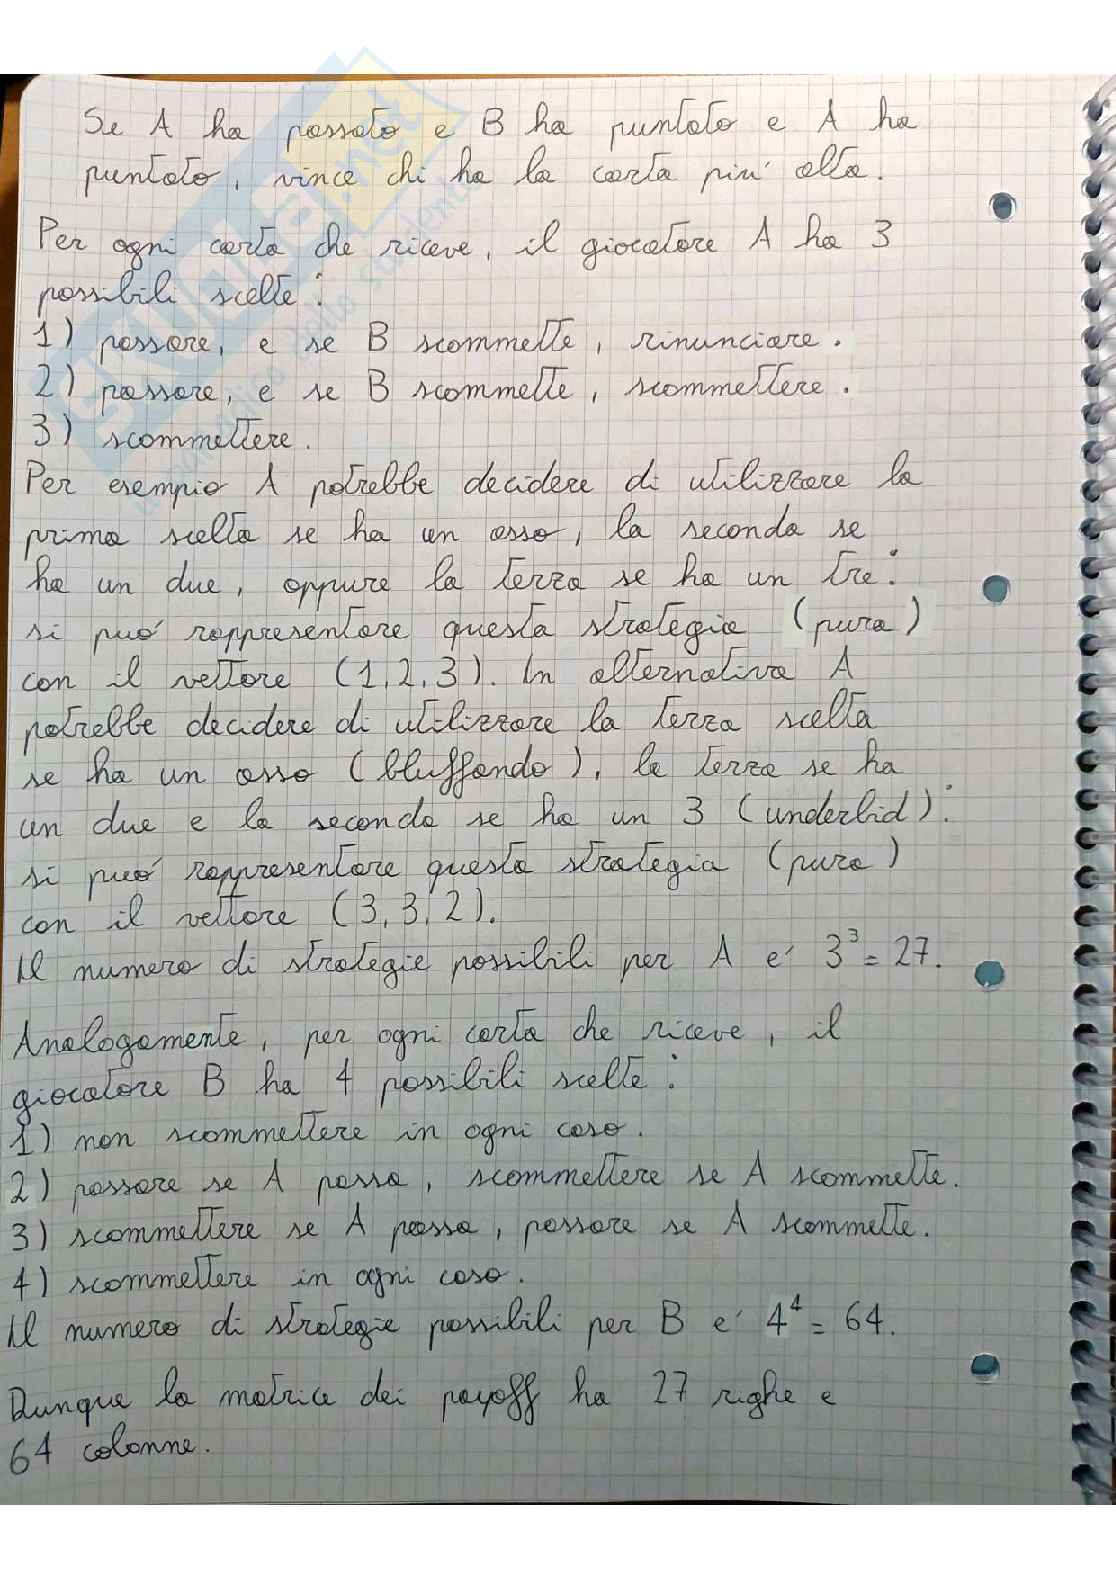 Se A ha passato e B ha puntato e A ha
puntato, vince chi ha la carta piú alta.
Per ogni carta che riceve, il giocatore A ha 3
possibili scelte:
1) passare, e se B scommette, rinunciare.
2) passare, e se B scommette, scommettere.
3) scommettere.
Per esempio A potrebbe decidere di utilizzare la
prima scelta se ha un asso, la seconda se
ha un due, oppure la terza se ha un tre:
si puó rappresentare questa strategia (pura)
con il vettore (1,2,3). In alternativa A
potrebbe decidere di utilizzare la terza scelta
se ha un asso (bluffando), la terza se ha
un due e la seconda se ha un 3 (underbid):
si puó rappresentare questa strategia (pura)
con il vettore (3,3,2).
Il numero di strategie possibili per A e' 3³ = 27.
Analogamente, per ogni carta che riceve, il
giocatore B ha 4 possibili scelte:
1) non scommettere in ogni caso.
2) passare se A passa, scommettere se A scommette.
3) scommettere se A passa, passare se A scommette.
4) scommettere in ogni caso.
Il numero di strategie possibili per B e' 4⁴ = 64.
Dunque la matrice dei payoff ha 27 righe e
64 colonne.